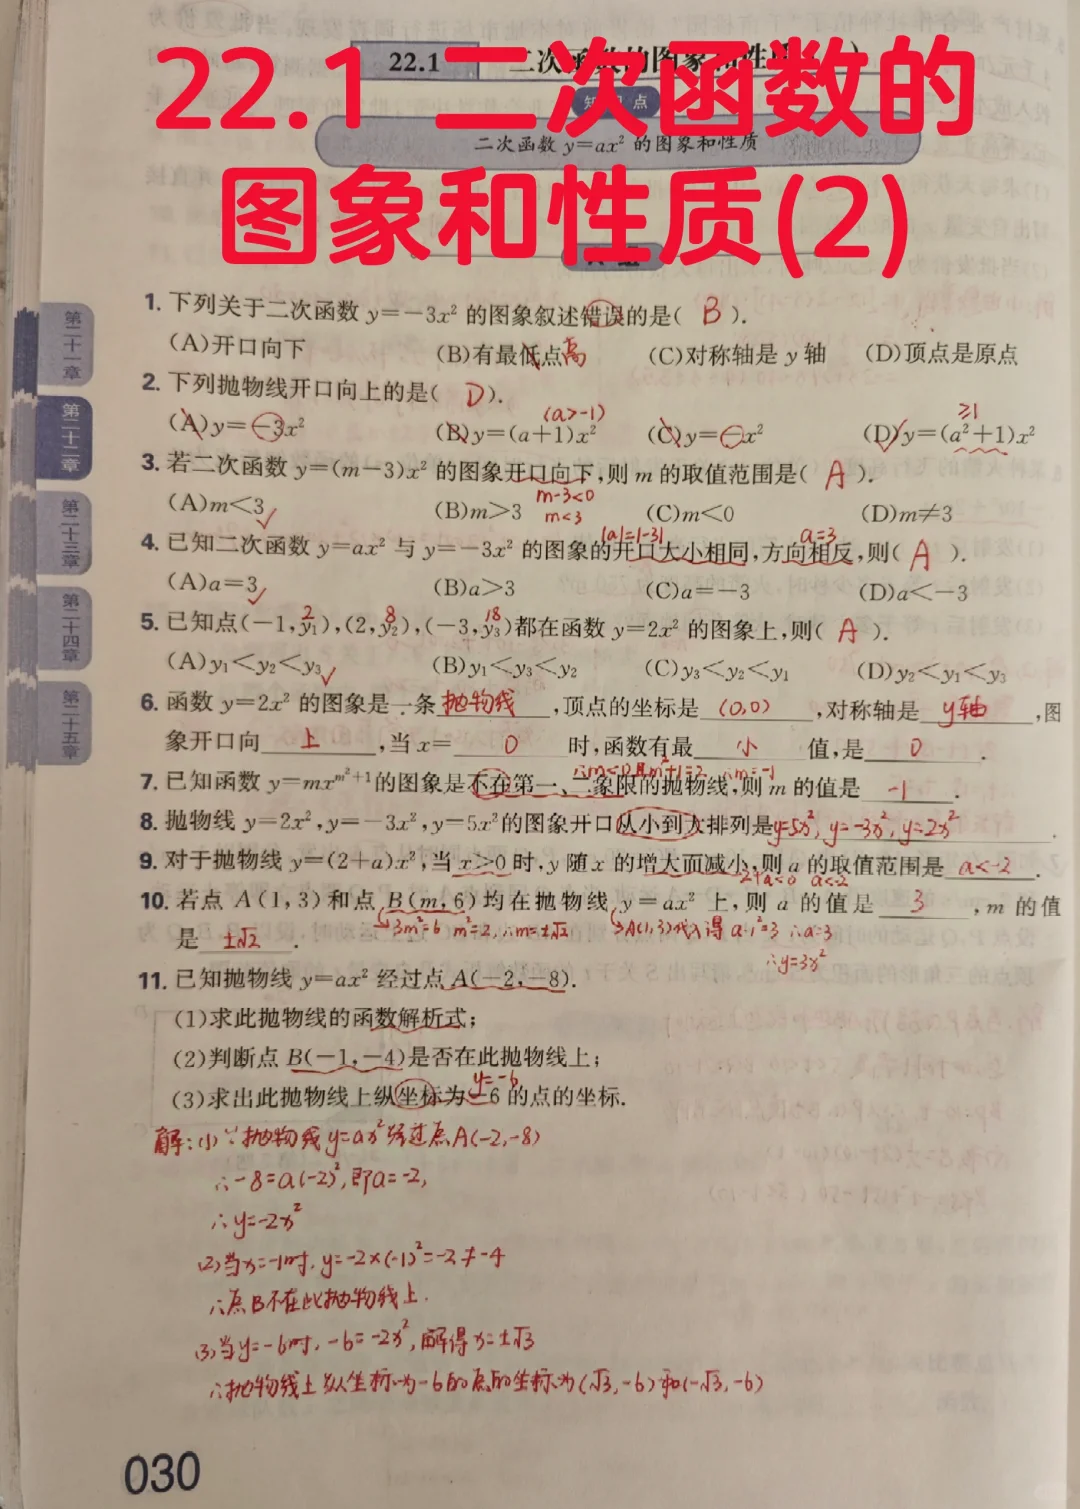 22.1 二次函数的
图象和性质(2)
22.1 二次函数的图象和性质
知识点
二次函数 y=ax² 的图象和性质
1. 下列关于二次函数 y=-3x² 的图象叙述错误的是( B ).
(A)开口向下 (B)有最低点高 (C)对称轴是 y 轴 (D)顶点是原点
2. 下列抛物线开口向上的是( D ).
(a>-1) ≥1
(A)y=-3x² (B)y=(a+1)x² (C)y=-x² (D)y=(a²+1)x²
3. 若二次函数 y=(m-3)x² 的图象开口向下,则 m 的取值范围是( A ).
m-3<0
(A)m<3 (B)m>3 m<3 (C)m<0 (D)m≠3
|a|=|-3| a=3
4. 已知二次函数 y=ax² 与 y=-3x² 的图象的开口大小相同,方向相反,则( A ).
(A)a=3 (B)a>3 (C)a=-3 (D)a<-3
2 8 18
5. 已知点(-1,y₁),(2,y₂),(-3,y₃)都在函数 y=2x² 的图象上,则( A ).
(A)y₁<y₂<y₃ (B)y₁<y₃<y₂ (C)y₃<y₂<y₁ (D)y₂<y₁<y₃
6. 函数 y=2x² 的图象是一条 抛物线 ,顶点的坐标是 (0,0) ,对称轴是 y轴 ,图
象开口向 上 ,当 x= 0 时,函数有最 小 值,是 0 .
∴m<0且m²+1=2 ∴m=-1
7. 已知函数 y=mx^{m²+1}的图象是不在第一、二象限的抛物线,则 m 的值是 -1 .
8. 抛物线 y=2x²,y=-3x²,y=5x²的图象开口从小到大排列是y=5x², y=-3x², y=2x² .
9. 对于抛物线 y=(2+a)x²,当 x>0 时,y 随 x 的增大而减小,则 a 的取值范围是 a<-2 .
2+a<0 a<-2
10. 若点 A(1,3)和点 B(m,6)均在抛物线 y=ax² 上,则 a 的值是 3 ,m 的值
是 ±√2 . 3m²=6 m²=2,∴m=±√2 A(1,3)代入得 a·1²=3 ∴a=3
∴y=3x²
11. 已知抛物线 y=ax² 经过点 A(-2,-8).
(1)求此抛物线的函数解析式;
(2)判断点 B(-1,-4)是否在此抛物线上;
y=-6
(3)求出此抛物线上纵坐标为-6 的点的坐标.
解:(1)∵抛物线y=ax²经过点A(-2,-8)
∴-8=a(-2)²,即a=-2,
∴y=-2x²
(2)当x=-1时,y=-2×(-1)²=-2≠-4
∴点B不在此抛物线上.
(3)当y=-6时,-6=-2x²,解得x=±√3
∴抛物线上纵坐标为-6的点的坐标为(√3,-6)和(-√3,-6)
第二十一章
第二十二章
第二十三章
第二十四章
第二十五章
030